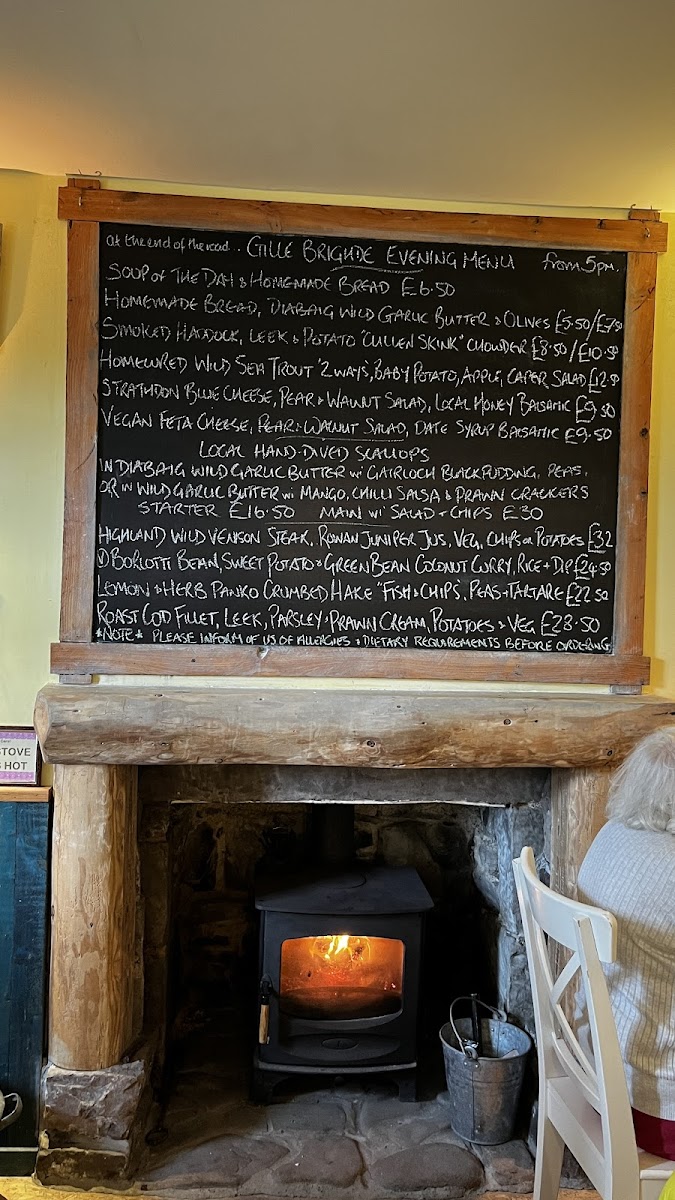 at the end of the road.. GILLE BRIGHDE EVENING MENU from 5pm.
SOUP OF THE DAY & HOMEMADE BREAD £6.50
HOMEMADE BREAD, DIABAIG WILD GARLIC BUTTER & OLIVES £5.50/£7.50
SMOKED HADDOCK, LEEK & POTATO "CULLEN SKINK" CHOWDER £8.50/£10.50
HOMECURED WILD SEA TROUT '2 WAYS', BABY POTATO, APPLE, CAPER SALAD £12.50
STRATHDON BLUE CHEESE, PEAR & WALNUT SALAD, LOCAL HONEY BALSAMIC £9.50
VEGAN FETA CHEESE, PEAR & WALNUT SALAD, DATE SYRUP BALSAMIC £9.50
LOCAL HAND-DIVED SCALLOPS
IN DIABAIG WILD GARLIC BUTTER w/ GAIRLOCH BLACK PUDDING, PEAS,
OR IN WILD GARLIC BUTTER w/ MANGO, CHILLI SALSA & PRAWN CRACKERS
STARTER £16.50 MAIN w/ SALAD + CHIPS £30
HIGHLAND WILD VENISON STEAK, ROWAN JUNIPER JUS, VEG, CHIPS OR POTATOES £32
BORLOTTI BEAN, SWEET POTATO & GREEN BEAN COCONUT CURRY, RICE + DIP £24.50
LEMON & HERB PANKO CRUMBED HAKE "FISH & CHIPS", PEAS + TARTARE £22.50
ROAST COD FILLET, LEEK, PARSLEY & PRAWN CREAM, POTATOES & VEG £28.50
*NOTE* PLEASE INFORM OF US OF ALLERGIES & DIETARY REQUIREMENTS BEFORE ORDERING
STOVE
HOT